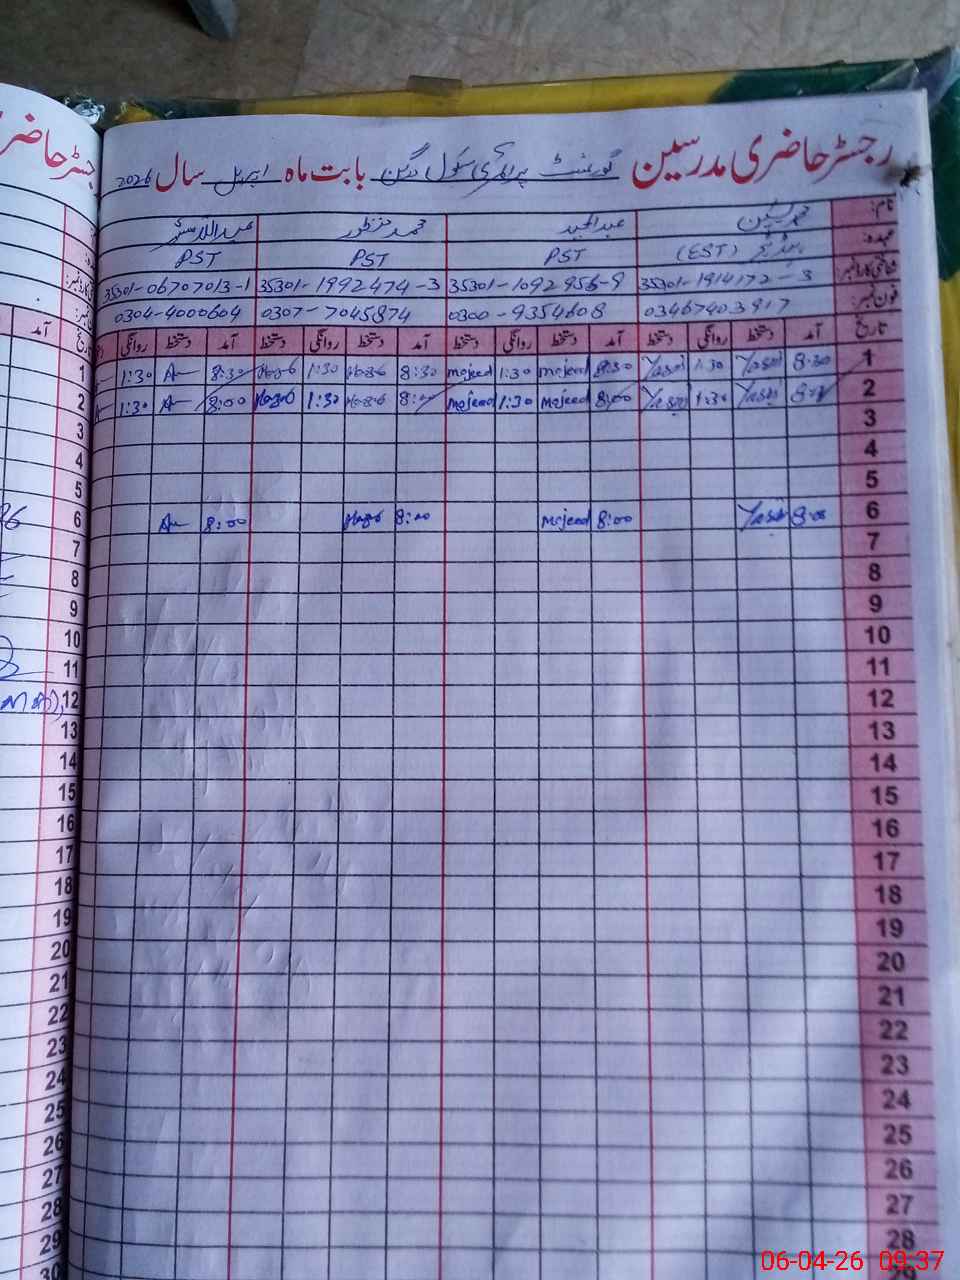 رجسٹر حاضری مدرسین گورنمنٹ پرائمری سکول بابت ماہ اپریل سال 2026
نام: محمد یٰسین عبدالمجید محمد منظور عبدالستار
عہدہ: (EST) PST PST PST
شناختی کارڈ نمبر: 35301-1914172-3 35301-1092956-9 35301-1992474-3 35301-06707013-1
فون نمبر: 03467403917 0300-9354608 0307-7045874 0304-4000604
تاریخ آمد دستخط روانگی دستخط آمد دستخط روانگی دستخط آمد دستخط روانگی دستخط آمد دستخط روانگی
1 8:30 Yasin 1:30 Yasin 8:30 majeed 1:30 majeed 8:30 1:30 8:30 1:30
2 8:00 Yasin 1:30 Yasin 8:00 majeed 1:30 majeed 8:00 1:30 8:00 1:30
3
4
5
6 8:00 Yasin 8:00 majeed 8:00 8:00
7
8
9
10
11
12
13
14
15
16
17
18
19
20
21
22
23
24
25
26
27
28
29
رجسٹر حاضر
تاریخ آمد
1
2
3
4
5
6
7
8
9
10
11
12
13
14
15
16
17
18
19
20
21
22
23
24
25
26
27
28
29
30
06-04-26 09:37